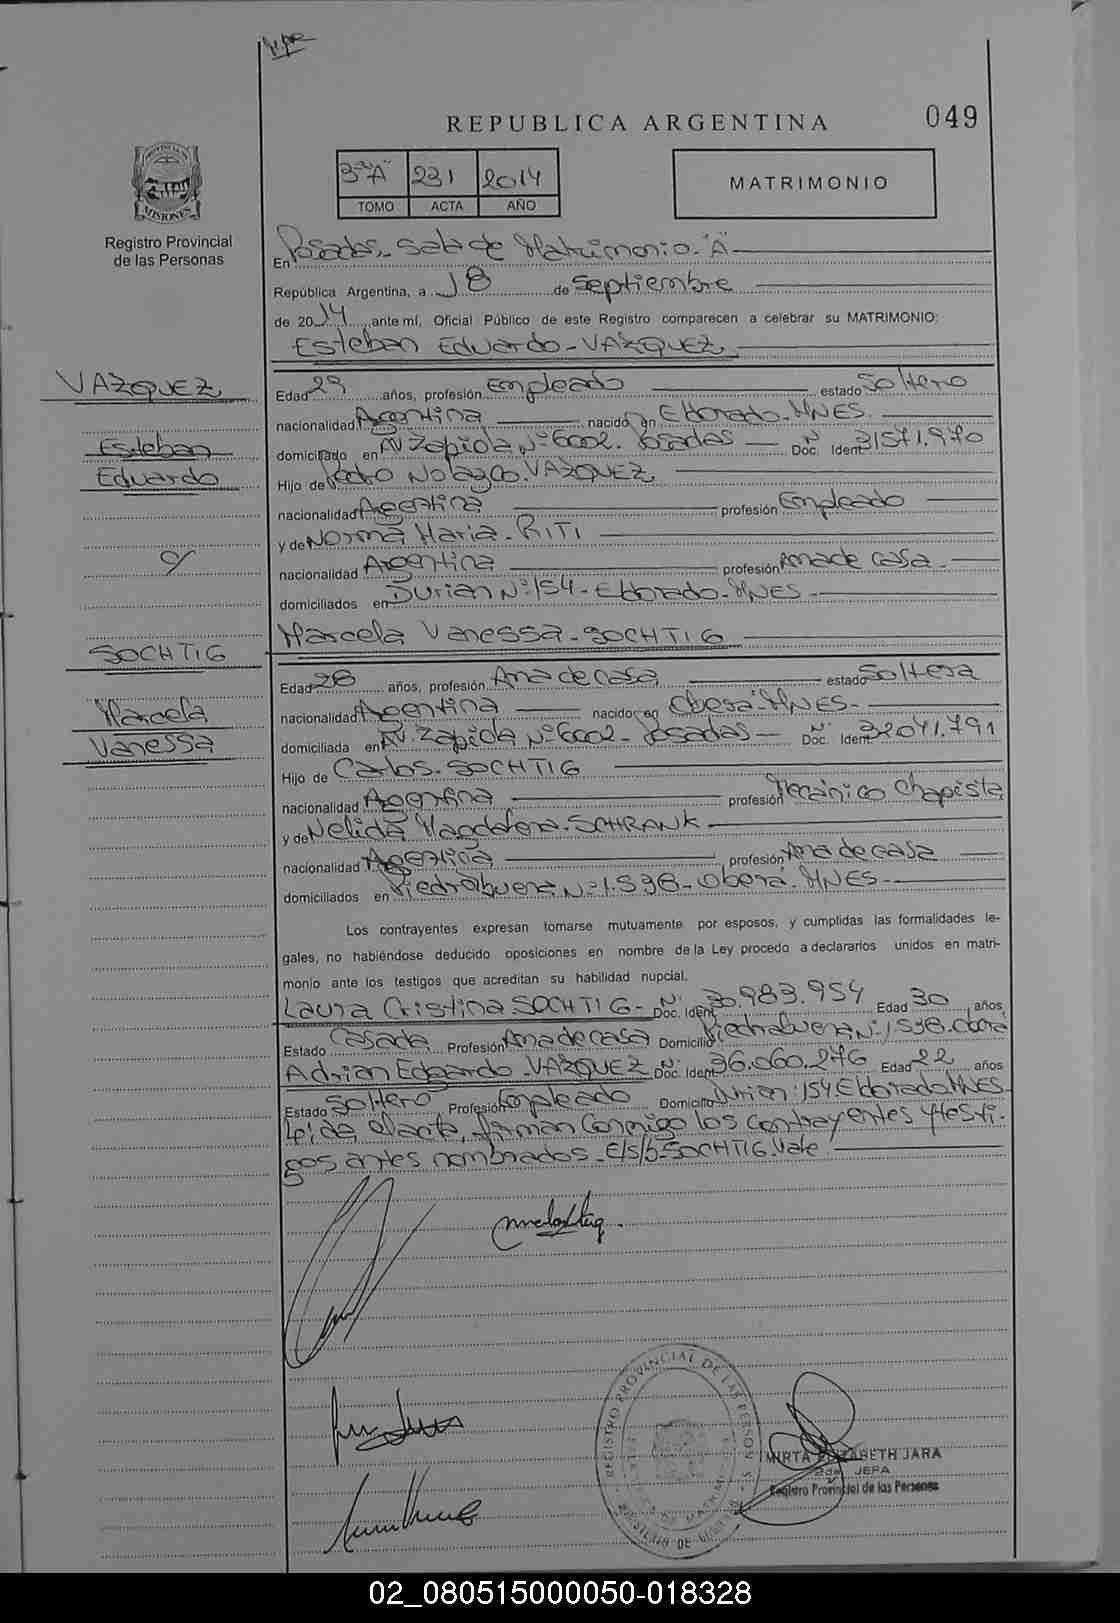 REPUBLICA ARGENTINA
049
3º "A" 231 2014
TOMO ACTA AÑO
MATRIMONIO
PROVINCIA DE
MISIONES
Registro Provincial
de las Personas
En Posadas, Sala de Matrimonio "A"
República Argentina, a 18 de Septiembre
de 2014 ante mí, Oficial Público de este Registro comparecen a celebrar su MATRIMONIO:
Esteban Eduardo - VAZQUEZ
VAZQUEZ
Esteban
Eduardo
Edad 29 años, profesión Empleado estado Soltero
nacionalidad Argentina nacido en Eldorado - MNES.
domiciliado en Av Zapiola Nº 6002 - Posadas Doc. Ident. Nº 31571.970
Hijo de Pedro Nolazco. VAZQUEZ
nacionalidad Argentina profesión Empleado
y de Norma Maria - RITI
c/
nacionalidad Argentina profesión Ama de casa
domiciliados en Durian Nº 154 - Eldorado - MNES
Marcela Vanessa - SOCHTIG
SOCHTIG
Marcela
Vanessa
Edad 28 años, profesión Ama de casa estado Soltera
nacionalidad Argentina nacido en Obera - MNES -
domiciliada en Av Zapiola Nº 6002 - Posadas Doc. Ident. Nº 32041.791
Hijo de Carlos. SOCHTIG
nacionalidad Argentina profesión Mecánico Chapista
y de Nelida Magdalena - SCHRANK
nacionalidad Argentina profesión Ama de casa
domiciliados en Piedrabuena Nº 1.598 - Obera - MNES -
Los contrayentes expresan tomarse mutuamente por esposos, y cumplidas las formalidades le-
gales, no habiéndose deducido oposiciones en nombre de la Ley procedo a declararlos unidos en matri-
monio ante los testigos que acreditan su habilidad nupcial.
Laura Cristina SOCHTIG - Doc. Ident. Nº 30.983.954 Edad 30 años,
Estado Casada Profesión Ama de casa Domicilio Piedrabuena Nº 1.598. Obera
Adrian Edgardo - VAZQUEZ Doc. Ident. Nº 36.060.276 Edad 22 años
Estado Soltero Profesión Empleado Domicilio Durian 154 Eldorado MNES -
Leida el acta, firman conmigo los contrayentes y testi-
gos antes nombrados - E/s/b - SOCHTIG. Vale
REGISTRO PROVINCIAL DE LAS PERSONAS
MIRTA ELIZABETH JARA
2da JEFA
Registro Provincial de las Personas
02_080515000050-018328